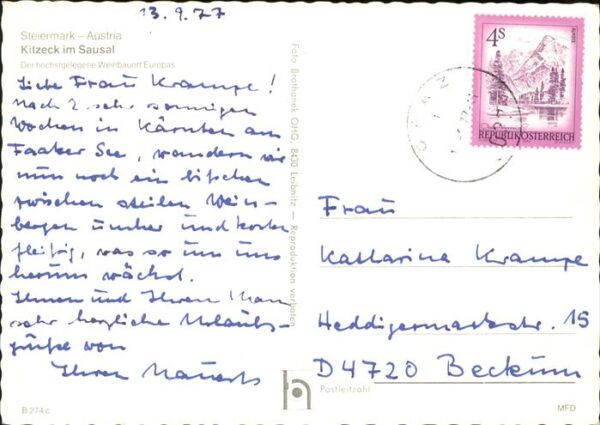 13.9.77
Steiermark – Austria
Kitzeck im Sausal
Der höchstgelegene Weinbauort Europas
Liebe Frau Krampe!
Nach 2 sehr sonnigen
Wochen in Kärnten am
Faaker See, wandern wir
nun noch ein bißchen
zwischen steilen Wein-
bergen umher und kosten
fleißig, was so um uns
herum wächst.
Ihnen und Ihrem Mann
sehr herzliche Urlaubs-
grüße von
Ihren
B 274 c
Foto Brotbank OHG, 8430 Leibnitz — Reproduktion verboten
4S
REPUBLIK ÖSTERREICH
GRAZ
Frau
Katharina Krampe
Heddigermarkstr. 15
D4720 Beckum
Postleitzahl
MFD